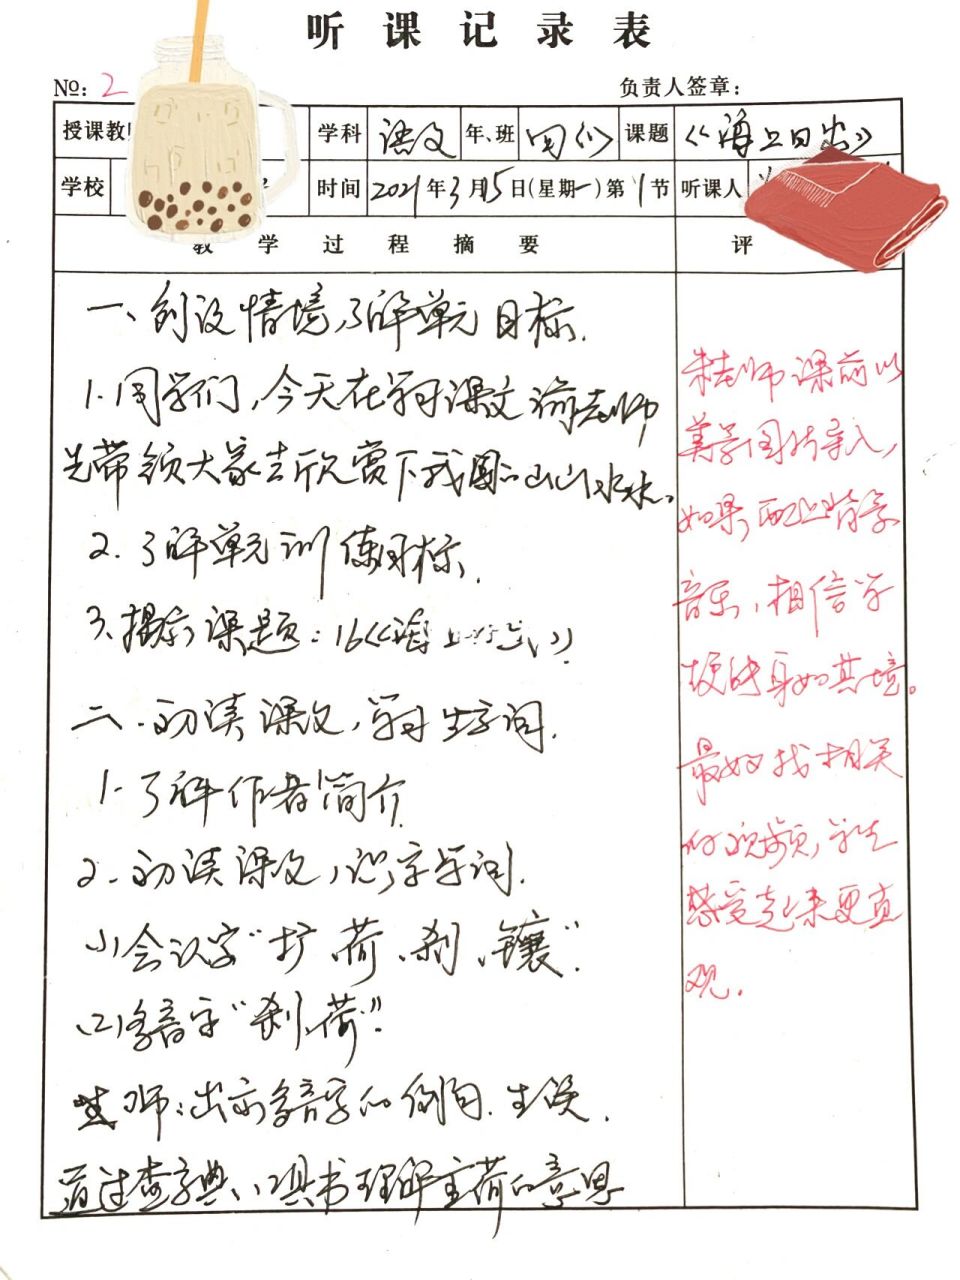 听课记录表
№: 2 负责人签章:
授课教 学科 语文 年、班 四(1) 课题 《海上日出》
学校 时间 2021年3月15日(星期一)第1节 听课人
教学过程摘要 评
一、创设情境,了解单元目标.
1.同学们,今天在学习课文前老师
先带领大家去欣赏下我国的山山水水。
2.了解单元训练目标.
3.揭示课题:16《海上日出》
二.初读课文,学习生字词.
1.了解作者简介
2.初读课文,识字学词.
(1)会认字“扩、荷、刹、镶”.
(2)多音字“刹、荷”.
师:出示多音字的例句.生读.
通过查字典、工具书理解重荷的意思
朱老师课前以
美景图片导入,
如果配上背景
音乐,相信学
更时身如其境。
最好找相关
的视频,学生
感受起来更直
观.